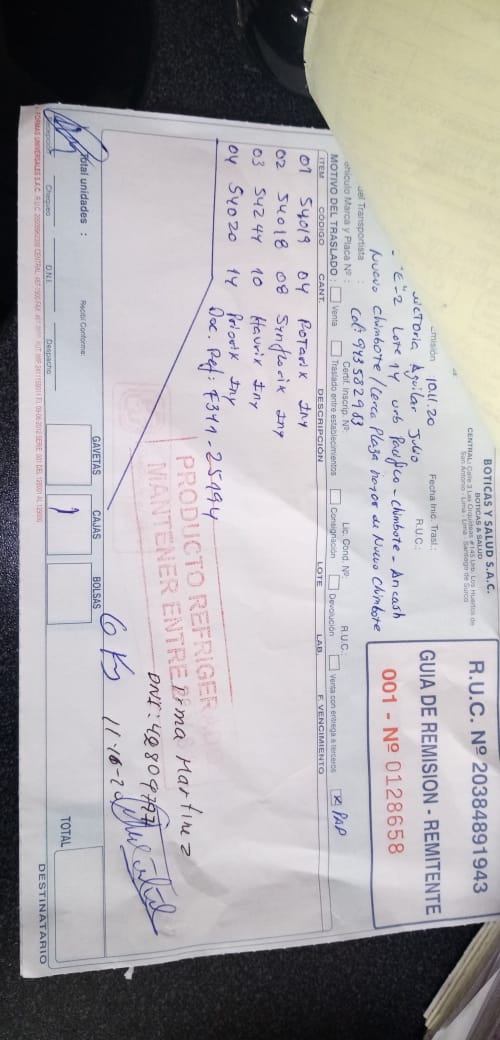 BOTICAS Y SALUD S.A.C.
BOTICAS & SALUD
CENTRAL: Calle 3 Las Orquideas #145 Urb. Los Huertos de
San Antonio - Lima - Lima - Santiago de Surco
R.U.C. Nº 20384891943
GUIA DE REMISION - REMITENTE
001 - Nº 0128658
10.11.20 Fecha Inic. Trasl.:
Victoria Aguilar Julio R.U.C:
"E-2 Lote 14 urb Pacifico - Chimbote - Ancash
Nuevo Chimbote / Cerca Plaza mayor de Nuevo Chimbote
del Transportista : R.U.C.:
Vehículo Marca y Placa Nº : Certif. Inscrip. Nº: Lic. Cond. Nº:
Cel: 943582983
MOTIVO DEL TRASLADO: Venta Traslado entre establecimientos Consignación Devolución Venta con entrega a terceros x PAP
ITEM CÓDIGO CANT. DESCRIPCIÓN LOTE LAB. F. VENCIMIENTO
01 54019 04 Rotarix Iny
02 54018 08 Synflorix Iny
03 54244 10 Havrix Iny
04 54020 14 Priorix Iny
Doc. Ref: F341-25194
PRODUCTO REFRIGER
MANTENER ENTRE 2
Irma Martinez
DNI: 40809797
6 Kg
Total unidades :
Recibí Conforme:
GAVETAS CAJAS BOLSAS TOTAL
1
Chequeo D.N.I. Despacho
DESTINATARIO